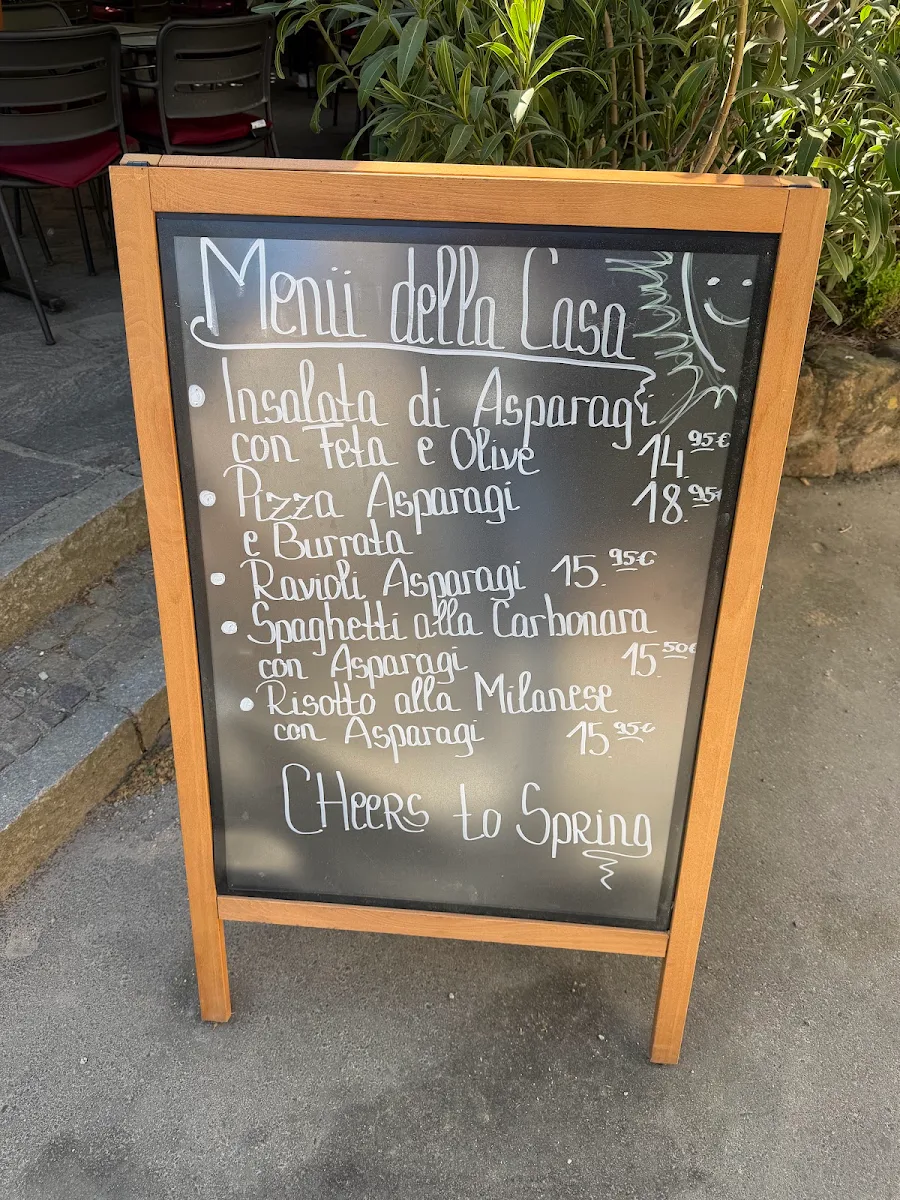 Menü della Casa
• Insalata di Asparagi
con Feta e Olive 14.95€
• Pizza Asparagi 18.95€
e Burrata
• Ravioli Asparagi 15.95€
• Spaghetti alla Carbonara
con Asparagi 15.50€
• Risotto alla Milanese
con Asparagi 15.95€
CHeeRS to SpRing